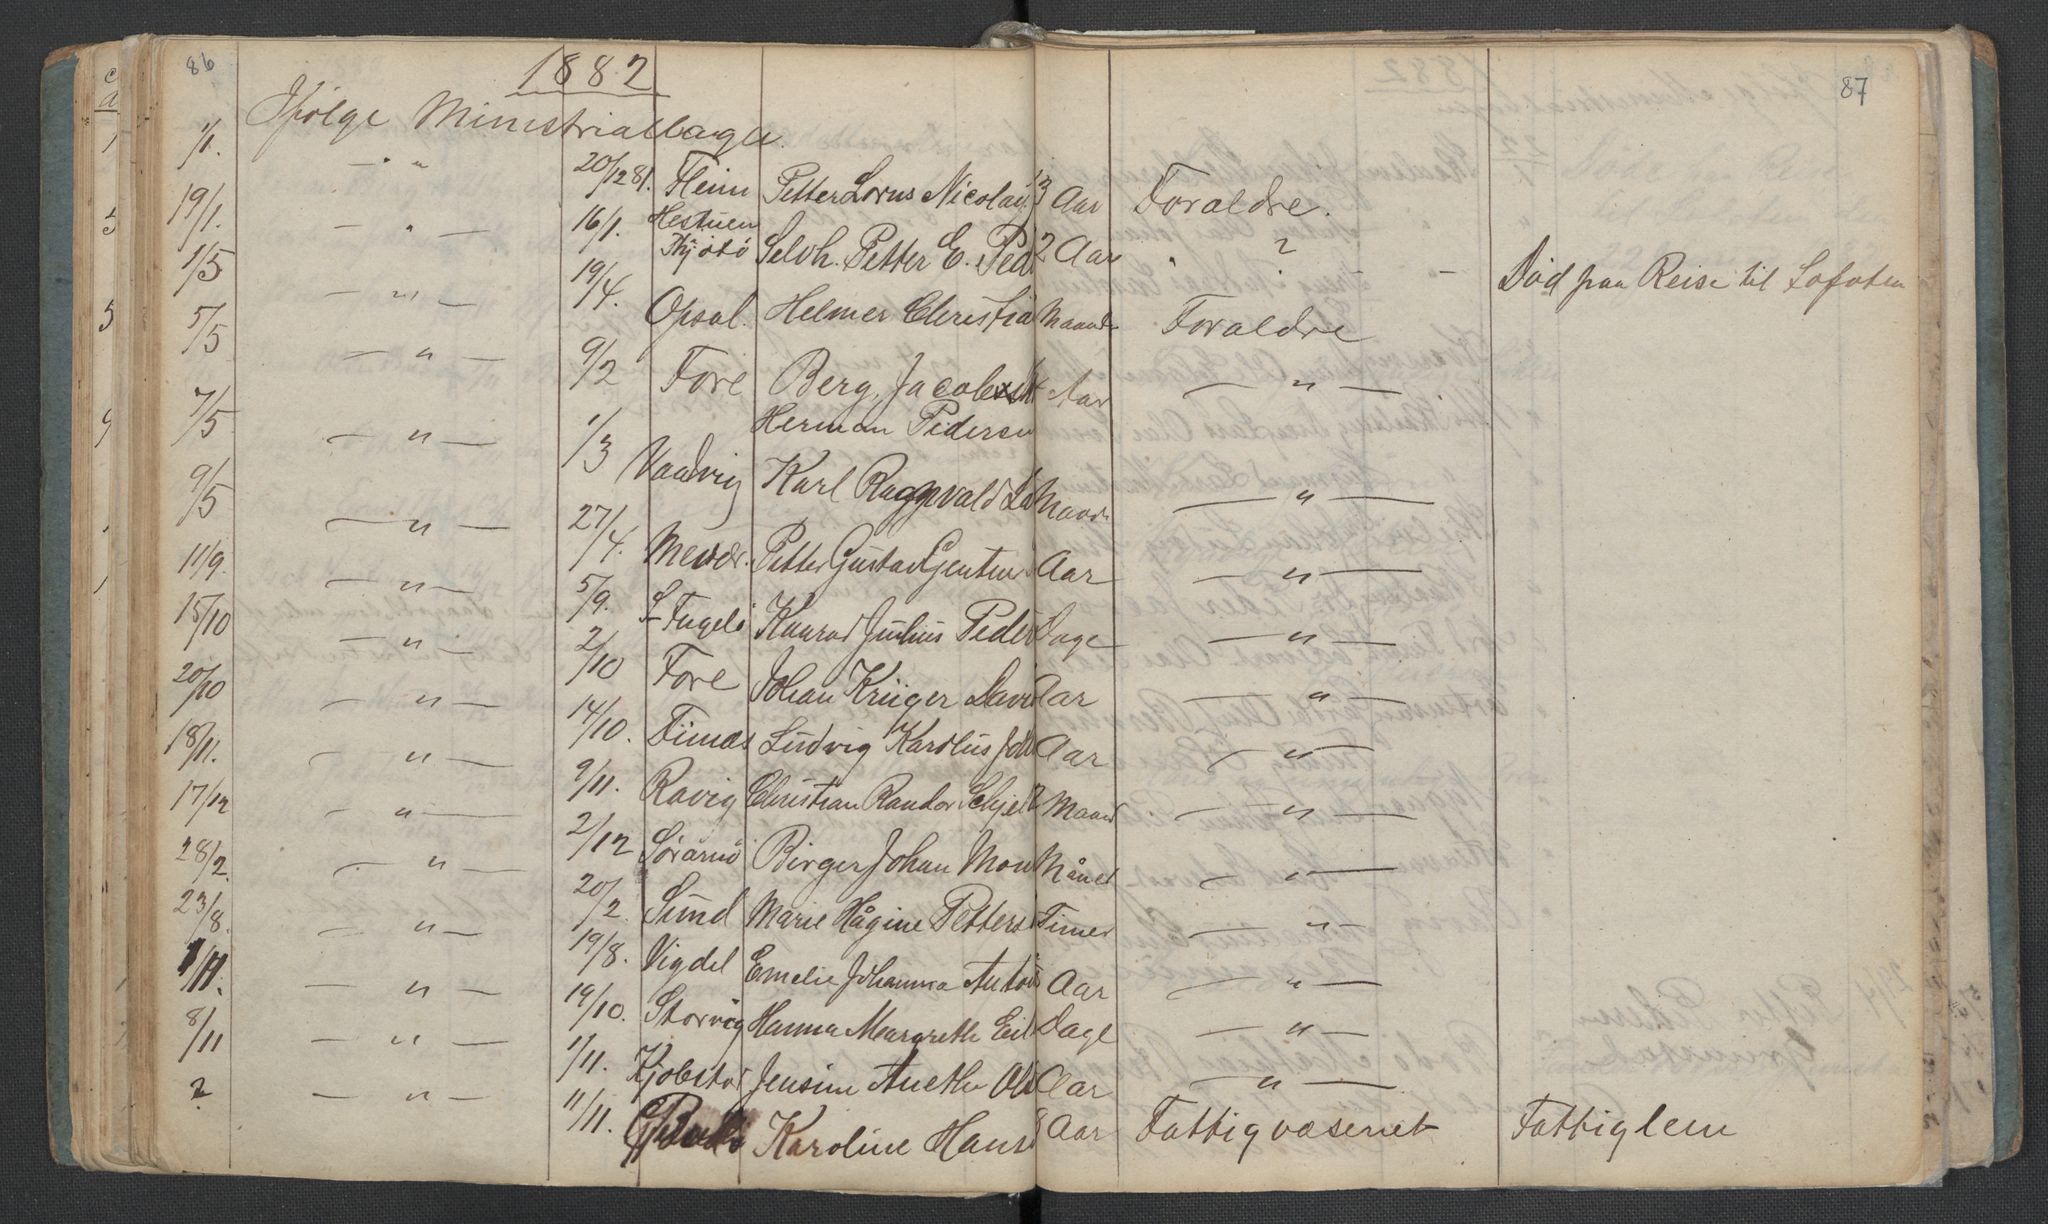 86
1882
87
Ifølge Ministrialbogen
1/1. — " 20/12 81. Heim Petter Lorns Nicolay 3 Aar Foraldre.
19/1. — " — 16/1. Hestuen Selvh. Petter E. Ped 2 Aar " ? —
1/5 — " — 19/4. Opsal. Helmer Christia Maand Foraldre Død paa Reise til Lofoten
5/5 — " — 9/2 Fore Berg, Jacob Aar — " —
Herman Pedersen
7/5 — " — 1/3 Vaadvig Karl Ragnvald Maan — " —
9/5 — " — 27/4. Petter Gustav Aar — " —
11/9. — " — 5/9. S Fugelø Konrad Julius Peder Dage — " —
15/10 — " — 2/10 Fore Johan Krüger Davi Aar — " —
20/10 — " — 14/10. Ludvig Karolius Joh Aar — " —
18/11. — " — 9/11. Ravig Christian Randor Schjel 2 Maan — " —
17/12 — " — 2/12 Sørarnø Birger Johan Mon Måned — " —
28/2. — " — 20/2. Sund Marie Hågine Petters Timer — " —
23/8. — " — 19/8. Vigdel Emelie Johanna Anton Aar — " —
1/11. — " — 19/10. Storvig Hanna Margreth Eil Dage — " —
8/11 — " — 1/11. Kjobstad Jensine Anethe Ols Aar — " —
? — " — 11/11. Karoline Hans 8 Aar Fattigvæsenet Fattiglem